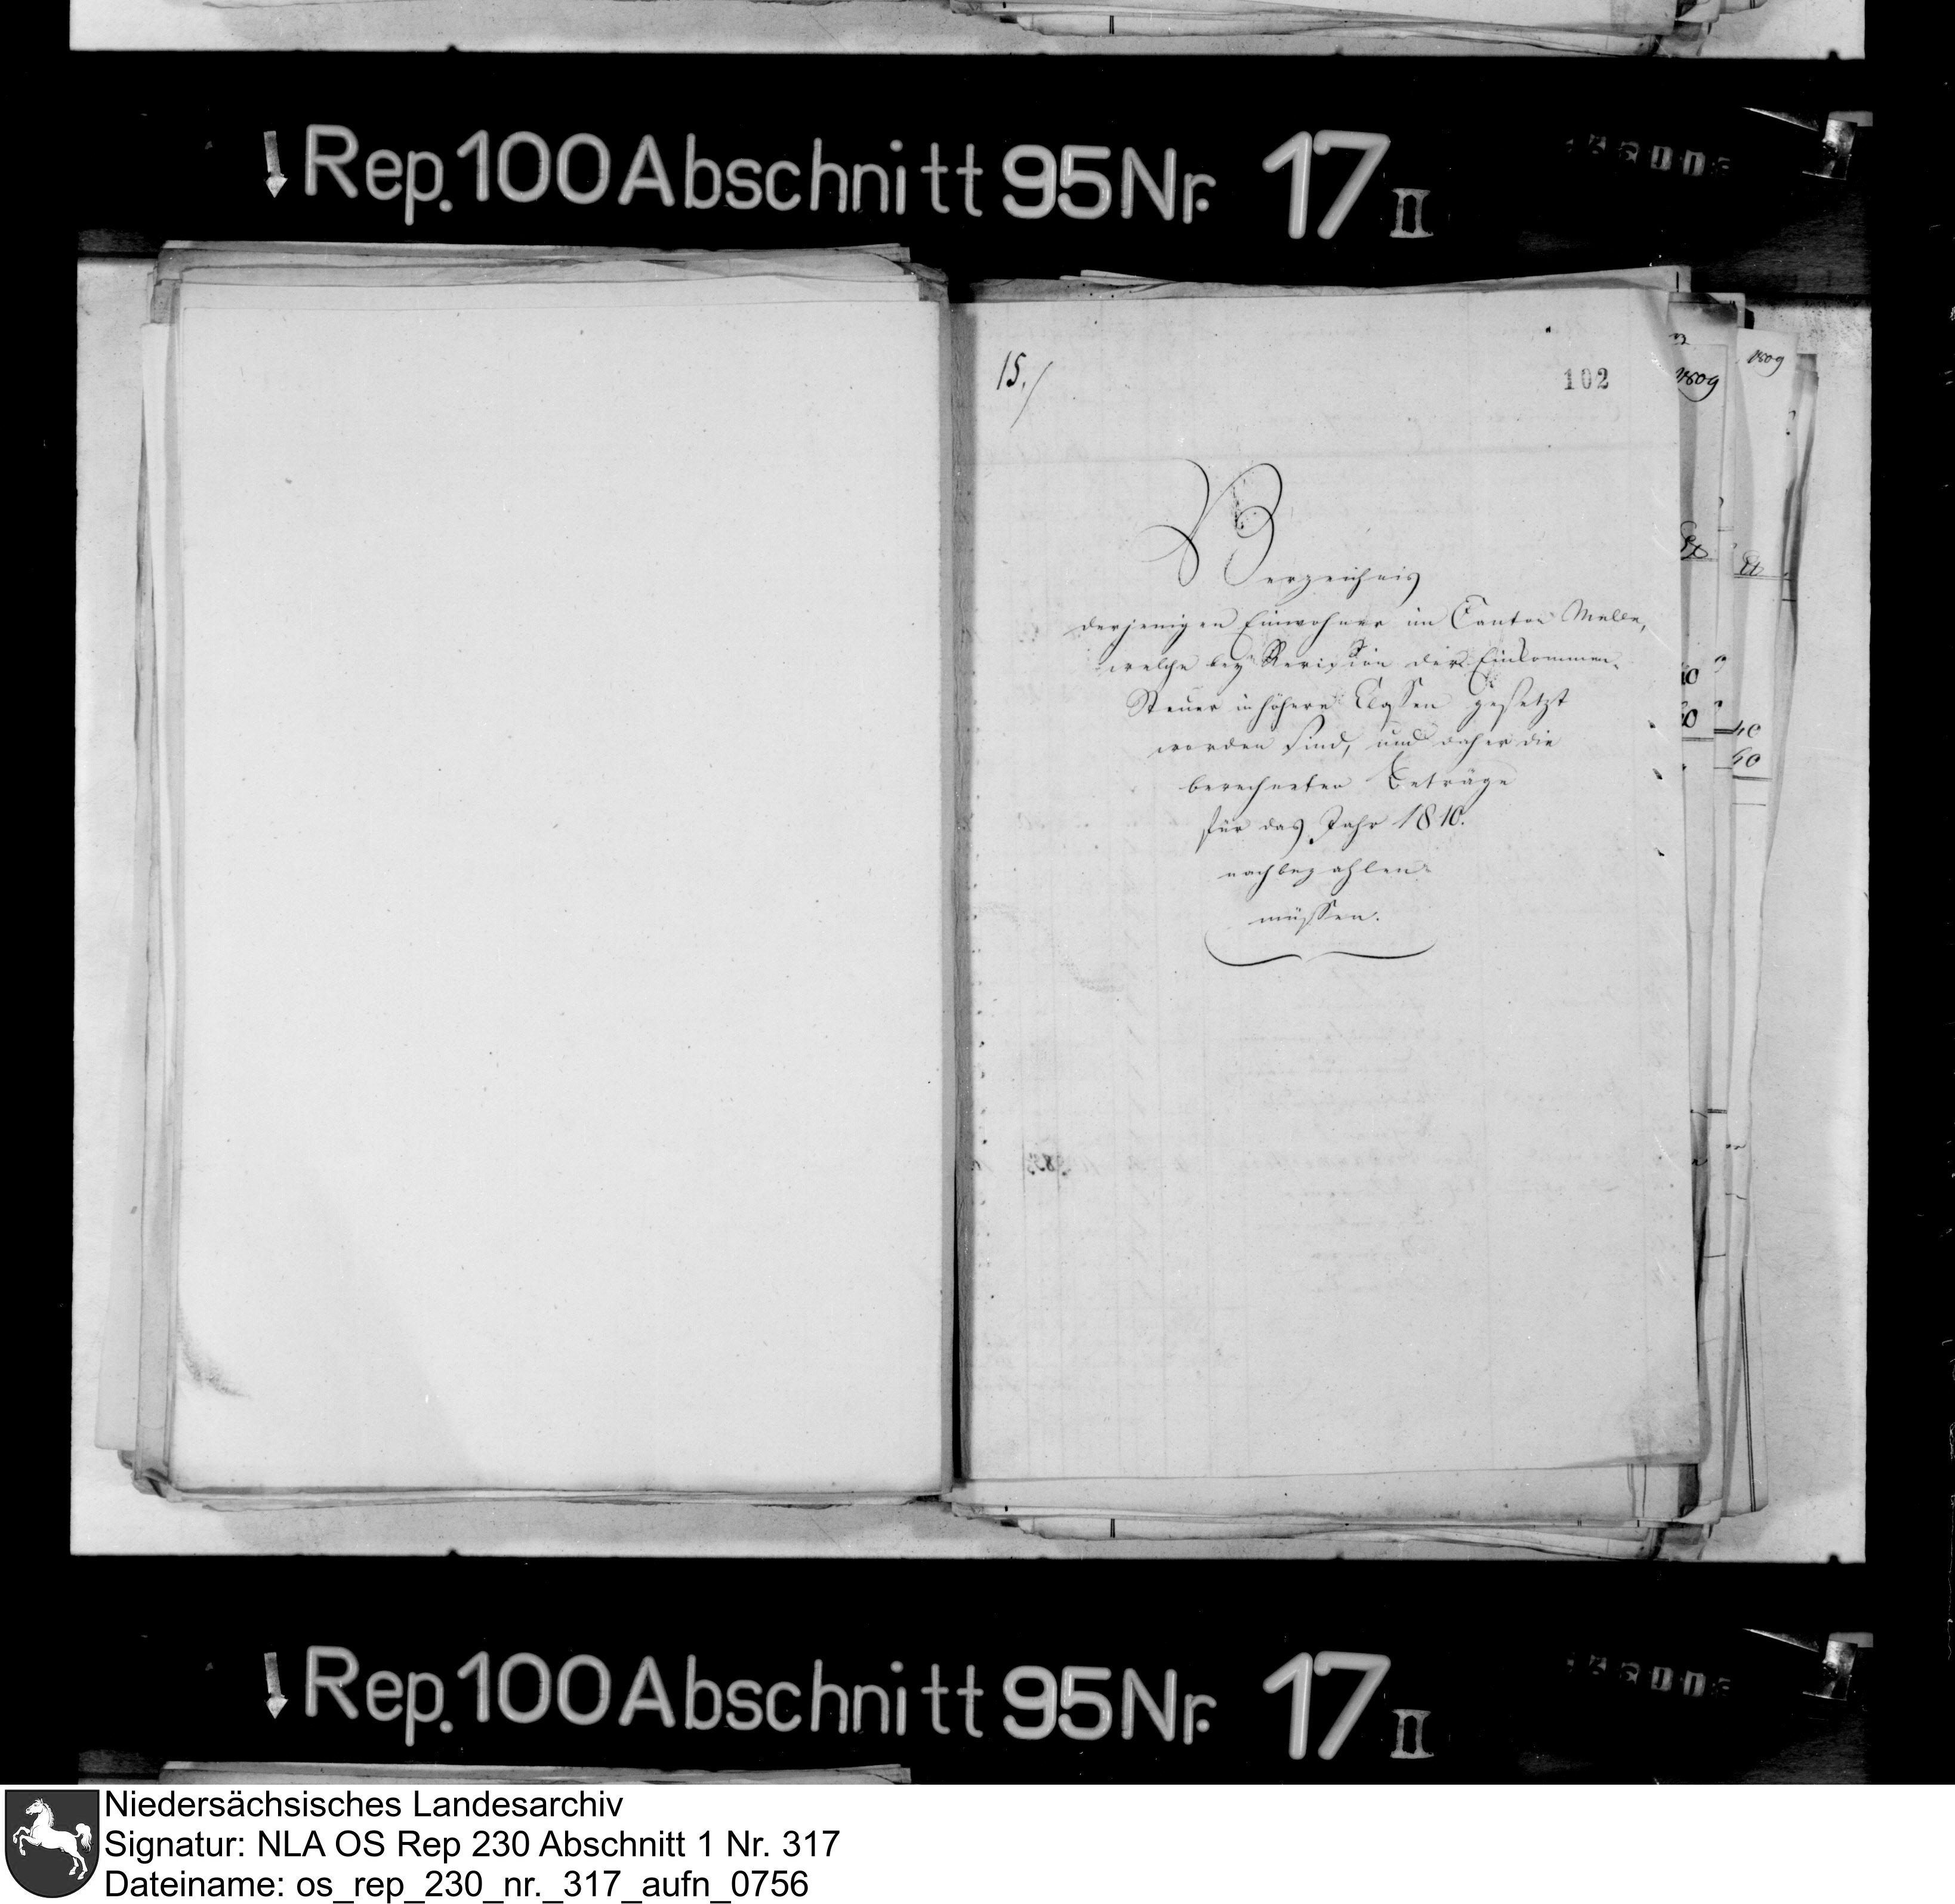 Rep. 100 Abschnitt 95 Nr. 17 II
15./
102
1809
1809
Verzeichnis
derjenigen Einwohner im Canton Melle,
welche bey Revision der Einkommen-
Steuer in höhere Classen gesetzt
worden sind, und daher die
berechneten Beträge
für das Jahr 1810.
nachbezahlen
müssen.
Rep. 100 Abschnitt 95 Nr. 17 II
Niedersächsisches Landesarchiv
Signatur: NLA OS Rep 230 Abschnitt 1 Nr. 317
Dateiname: os_rep_230_nr._317_aufn_0756